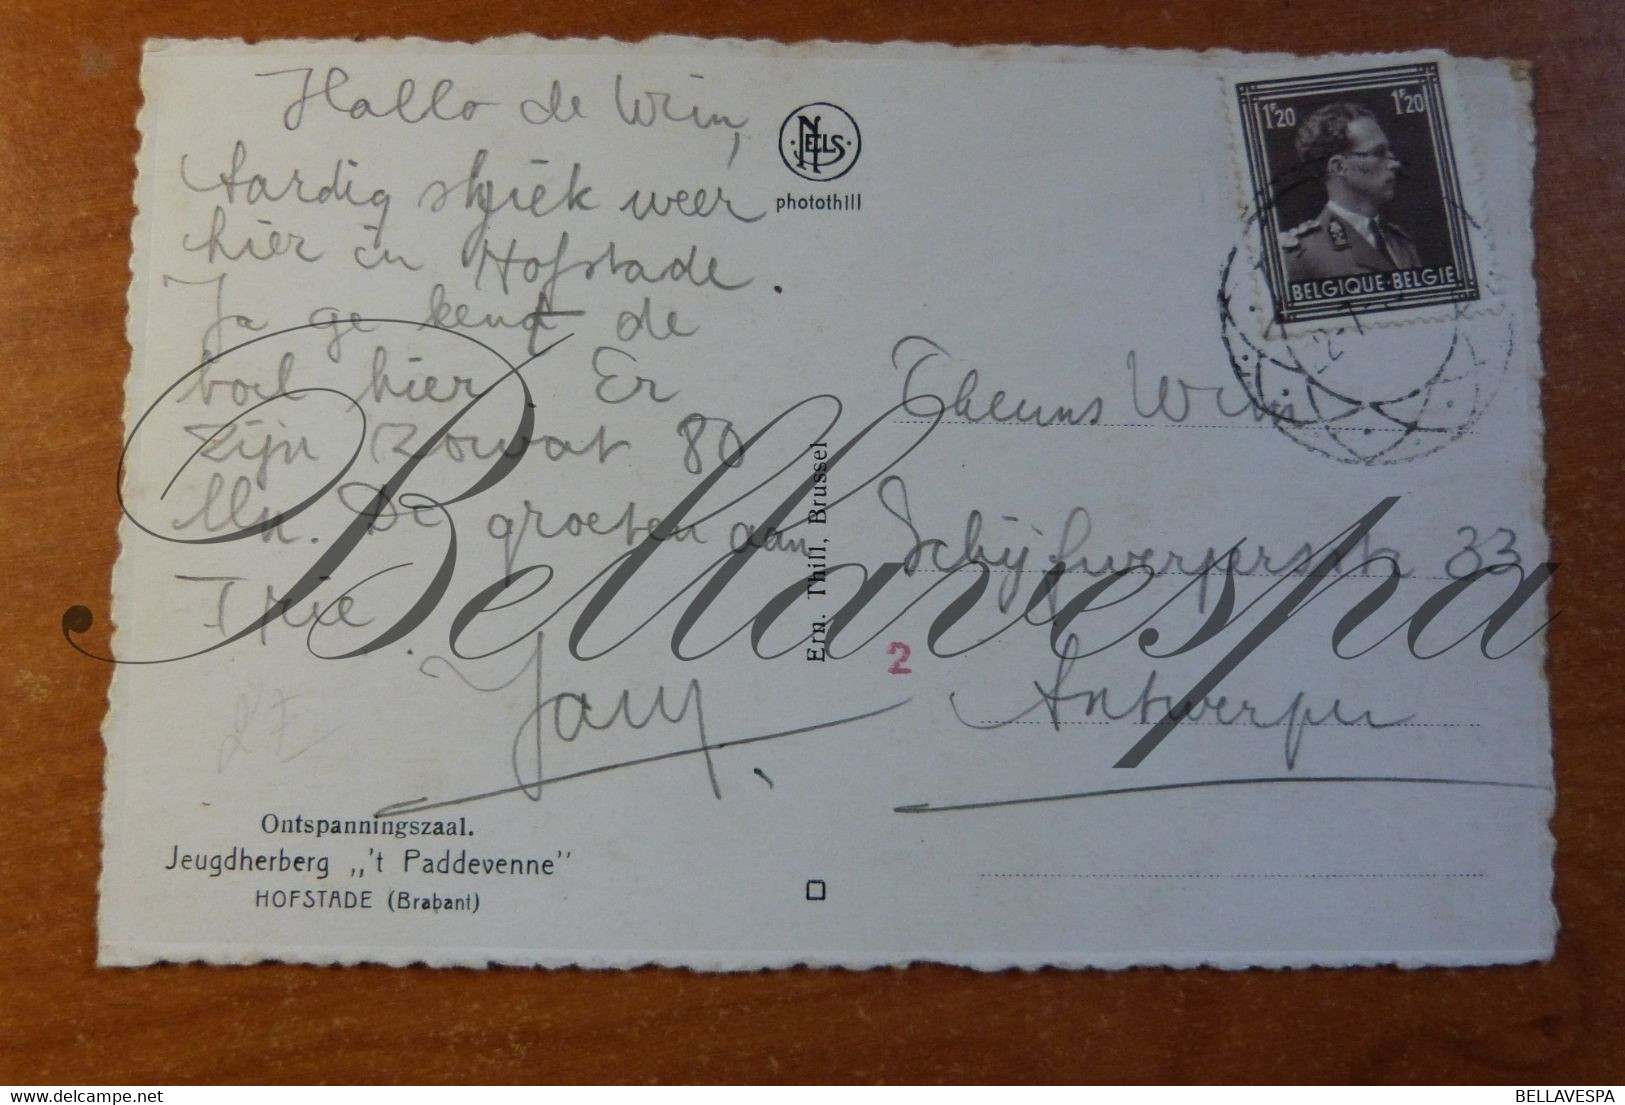 Hallo de Wim,
Aardig sfeer weer
hier in Hofstade.
Ja ge kent de
boel hier. Er
zijn zowat 80
Mn. De groeten aan
Trie.
NELS
photothill
1F20 1F20
BELGIQUE·BELGIE
Theuns Wim
Schijfwerpersstr 33
Antwerpen
Ern. Thill, Brussel
2
Ontspanningszaal.
Jeugdherberg „'t Paddevenne"
HOFSTADE (Brabant)
Bellavespa
delcampe.net
BELLAVESPA